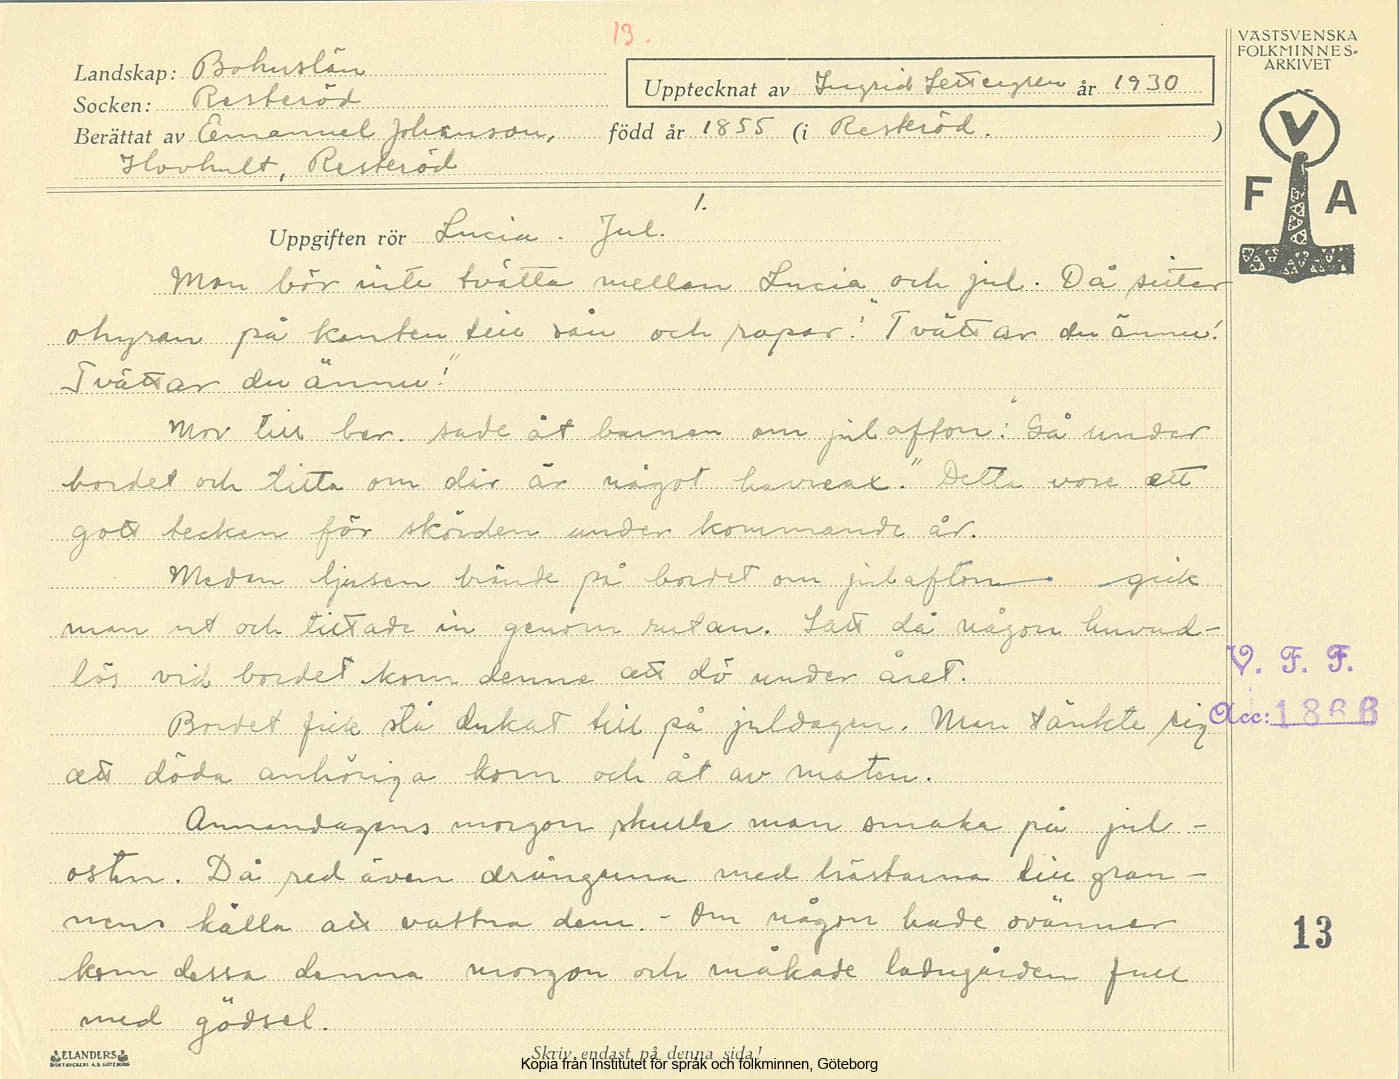 13.
VÄSTSVENSKA
FOLKMINNES-
ARKIVET
V
F A
Landskap: Bohuslän
Upptecknat av Ingrid Settergren år 1930
Socken: Resteröd
Berättat av Emanuel Johanson, född år 1855 (i Resteröd. )
Hovhult, Resteröd
1.
Uppgiften rör Lucia. Jul.
Man bör inte tvätta mellan Lucia och jul. Då sitter
ohyran på kanten till sån och ropar: "Tvättar du ännu!
Tvättar du ännu!"
Mor till ber. sade åt barnen om julafton: "Gå under
bordet och titta om där är något havreax." Detta vore ett
gott tecken för skörden under kommande år.
Medan ljusen brände på bordet om julafton gick
man ut och tittade in genom rutan. Satt då någon huvud-
lös vid bordet kom denne att dö under året.
Bordet fick stå dukat till på juldagen. Man tänkte sig
att döda anhöriga kom och åt av maten.
Annandagens morgon skulle man smaka på jul-
osten. Då red även drängarna med hästarna till gran-
nens källa att vattna dem. - Om någon hade ovänner
kom dessa denna morgon och måkade ladugården full
med gödsel.
V. F. F.
Acc: 1866
13
ELANDERS
BOKTRYCKERI A.B. GÖTEBORG
Skriv endast på denna sida!
Kopia från Institutet för språk och folkminnen, Göteborg